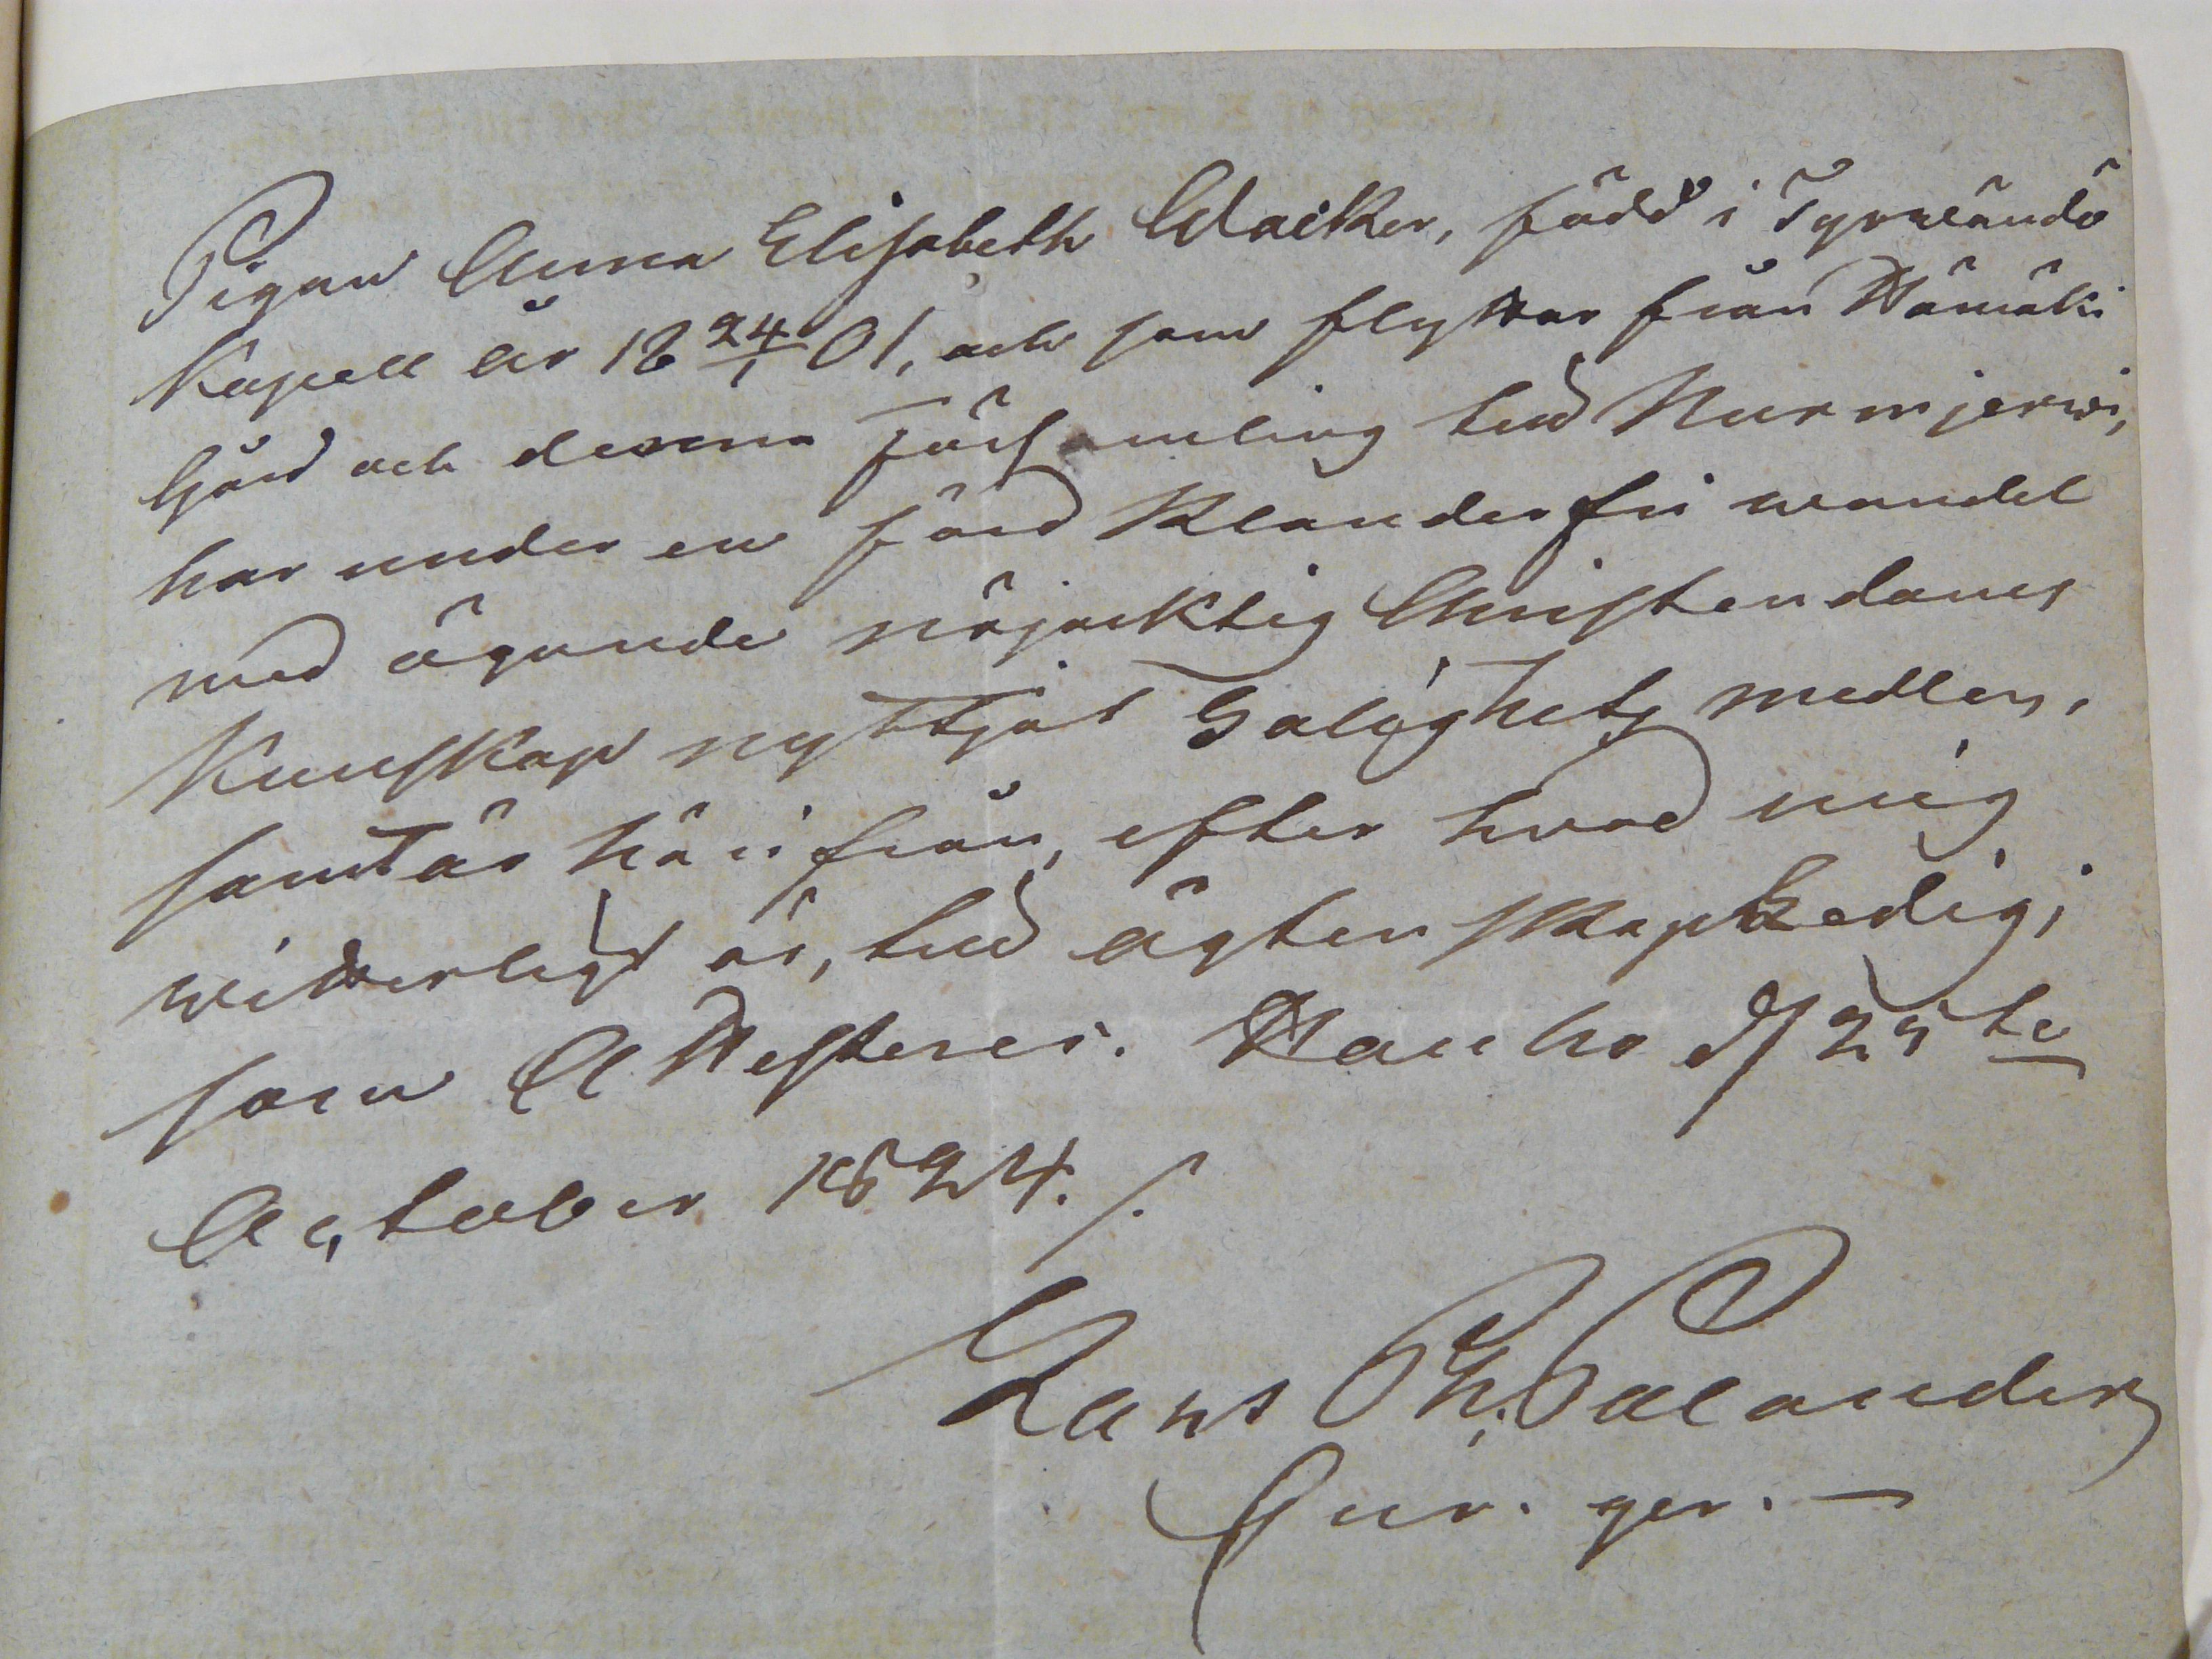 Pigan Anna Elisabeth Walker, född i Tyrwändö
Kapell år 18 24/1 01, och som flyttar från Hämäki
Gård och denna Församling till Nurmjerwi,
har under en förd Klanderfri wandel
med ägande nöjacktig Christendoms
Kunskap nyttjat Salighets medlen,
samt är härifrån, efter hvad mig
witterligt är, till ägtenskap Ledig;
som Attesteras. Hauho d 25te
October 1824. /.
Hans Ph. Palander
Cur. ger. —